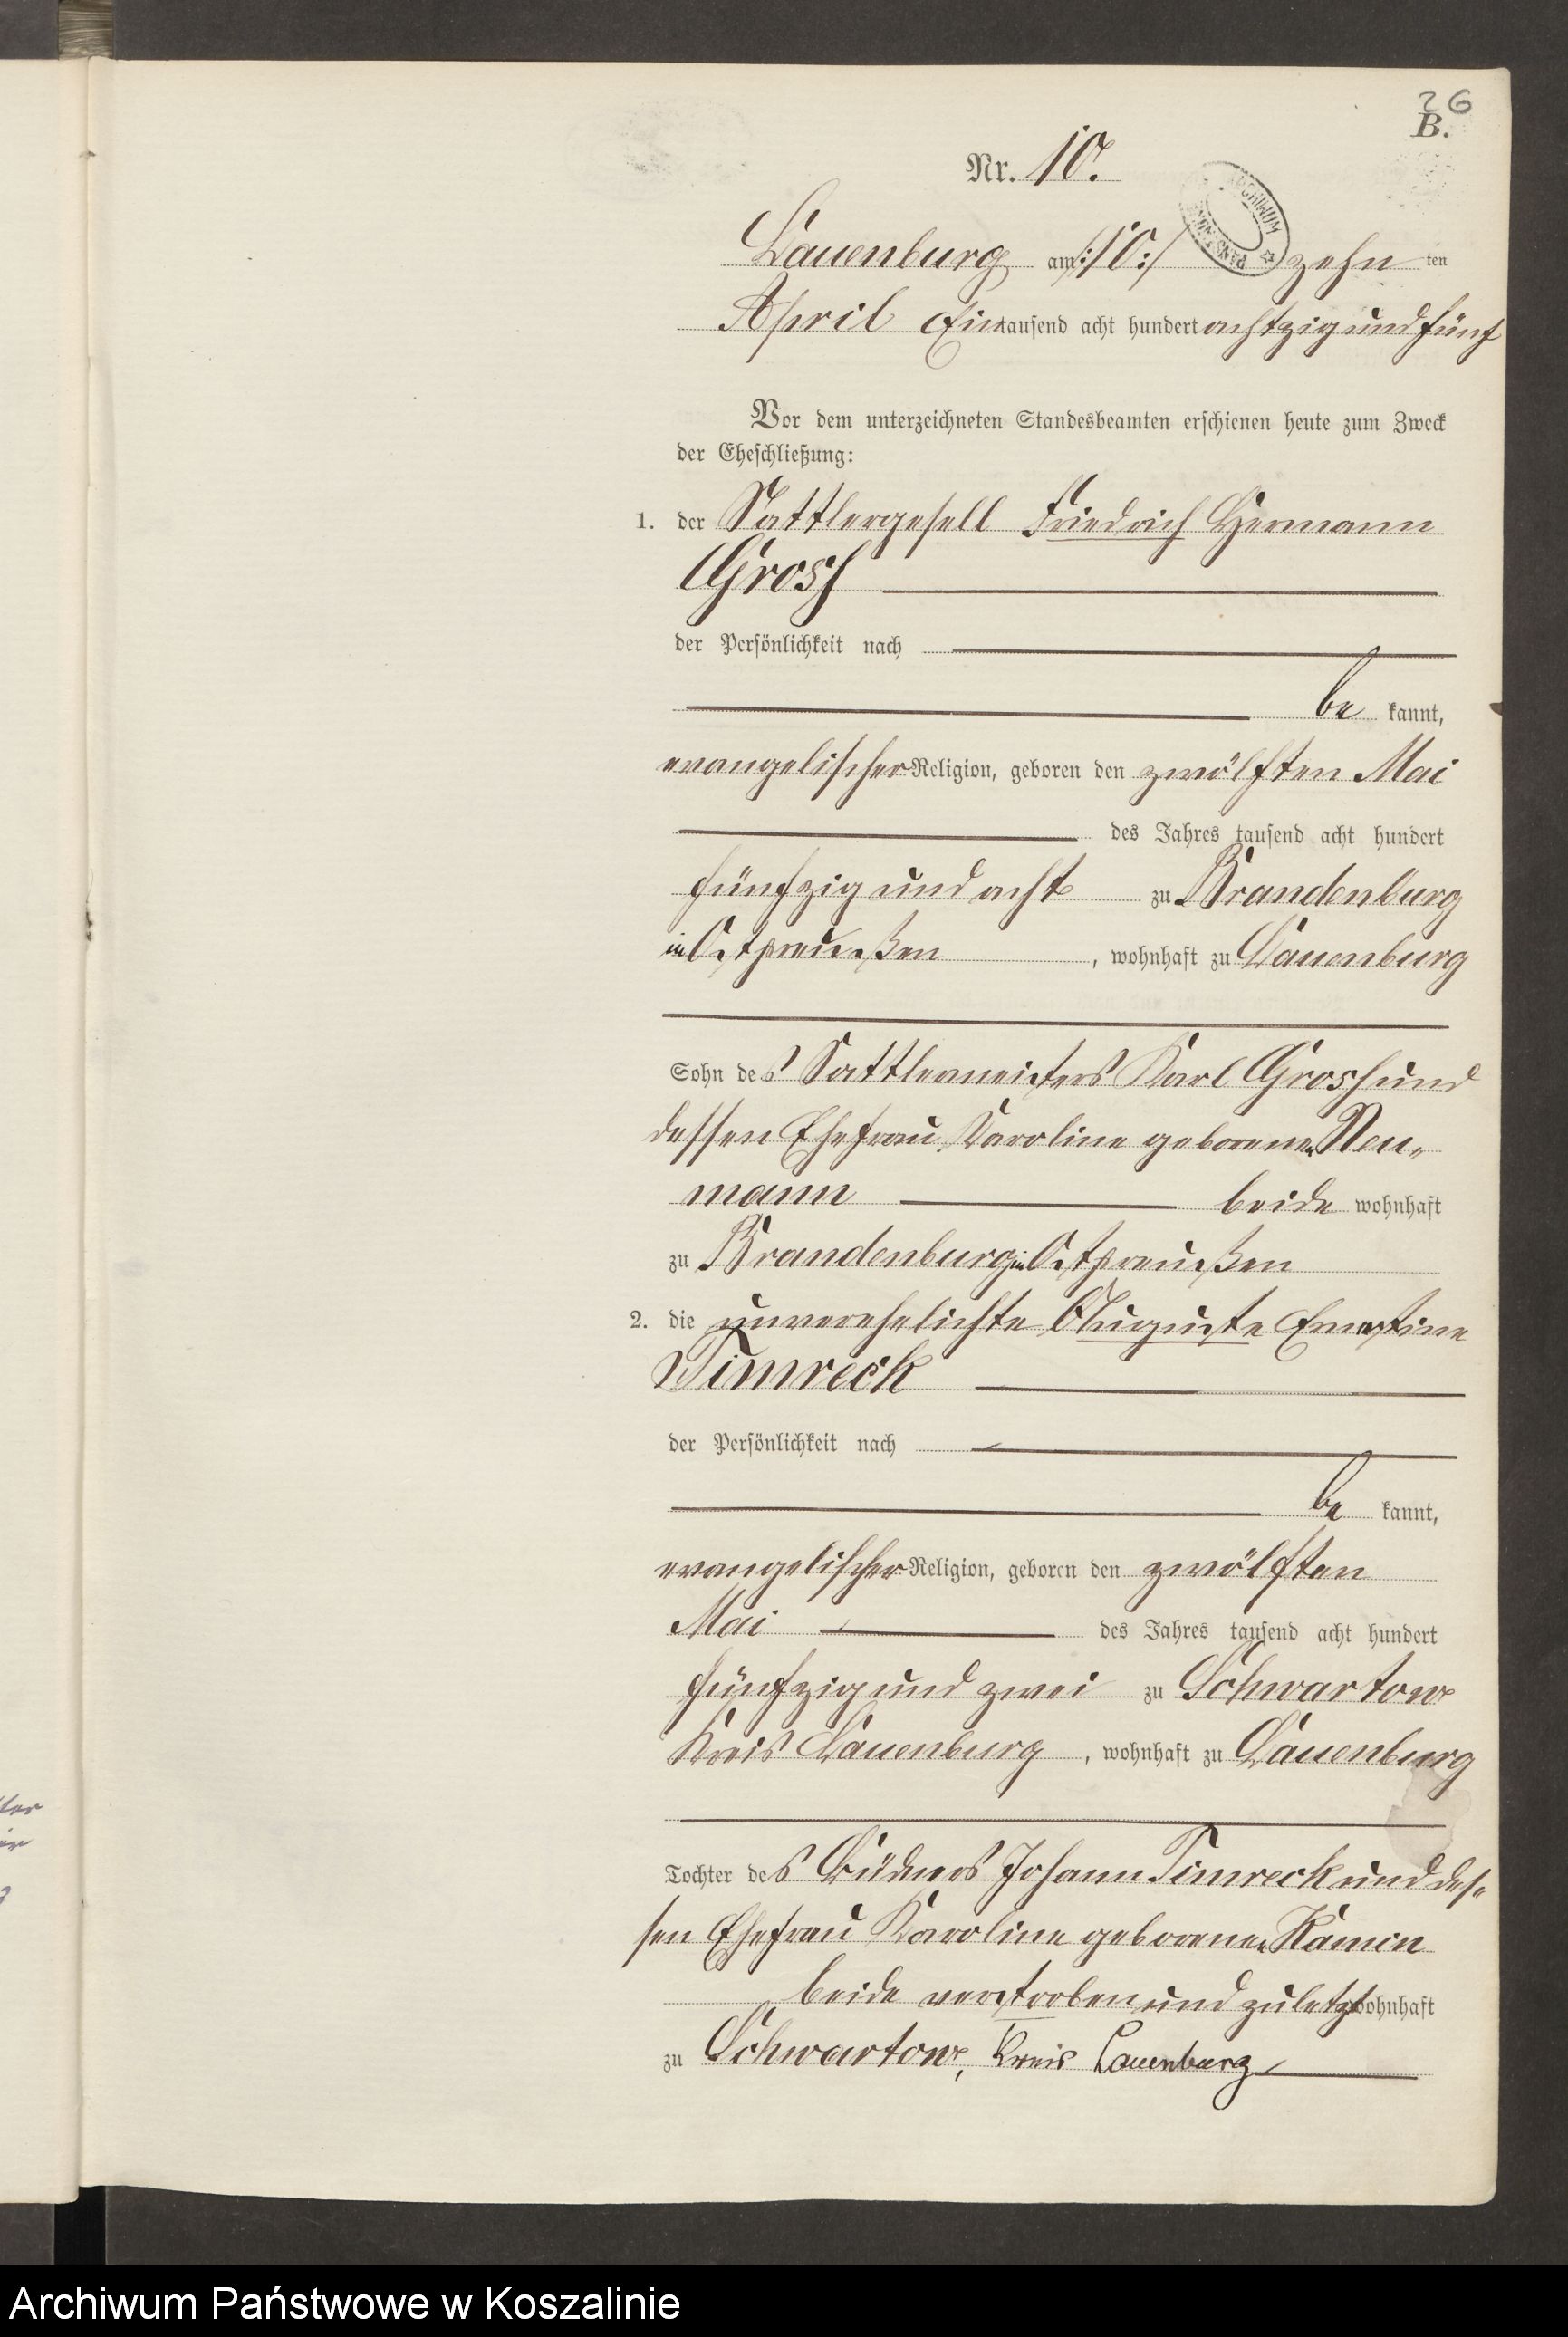 26
B.
Nr. 10.
Lauenburg am /:10:/ zehn ten
April Eintausend acht hundert achtzig und fünf
Vor dem unterzeichneten Standesbeamten erschienen heute zum Zweck
der Eheschließung:
1. der Sattlergesell Friedrich Hermann
Grosh
der Persönlichkeit nach
be kannt,
evangelischer Religion, geboren den zwölften Mai
des Jahres tausend acht hundert
fünfzig und acht zu Brandenburg
in Ostpreußen, wohnhaft zu Lauenburg
Sohn des Sattlermeisters Karl Grosh und
dessen Ehefrau Karoline geborenen Neu-
mann beide wohnhaft
zu Brandenburg in Ostpreußen
2. die unverehelichte Auguste Ernestine
Timreck
der Persönlichkeit nach
be kannt,
evangelischer Religion, geboren den zwölften
Mai des Jahres tausend acht hundert
fünfzig und zwei zu Schwartow
Kreis Lauenburg, wohnhaft zu Lauenburg
Tochter des Büdners Johann Timreck und des-
sen Ehefrau Karoline geborenen Kamin
beide verstorben und zuletzt wohnhaft
zu Schwartow, Kreis Lauenburg
ARCHIWUM PAŃSTW
Archiwum Państwowe w Koszalinie